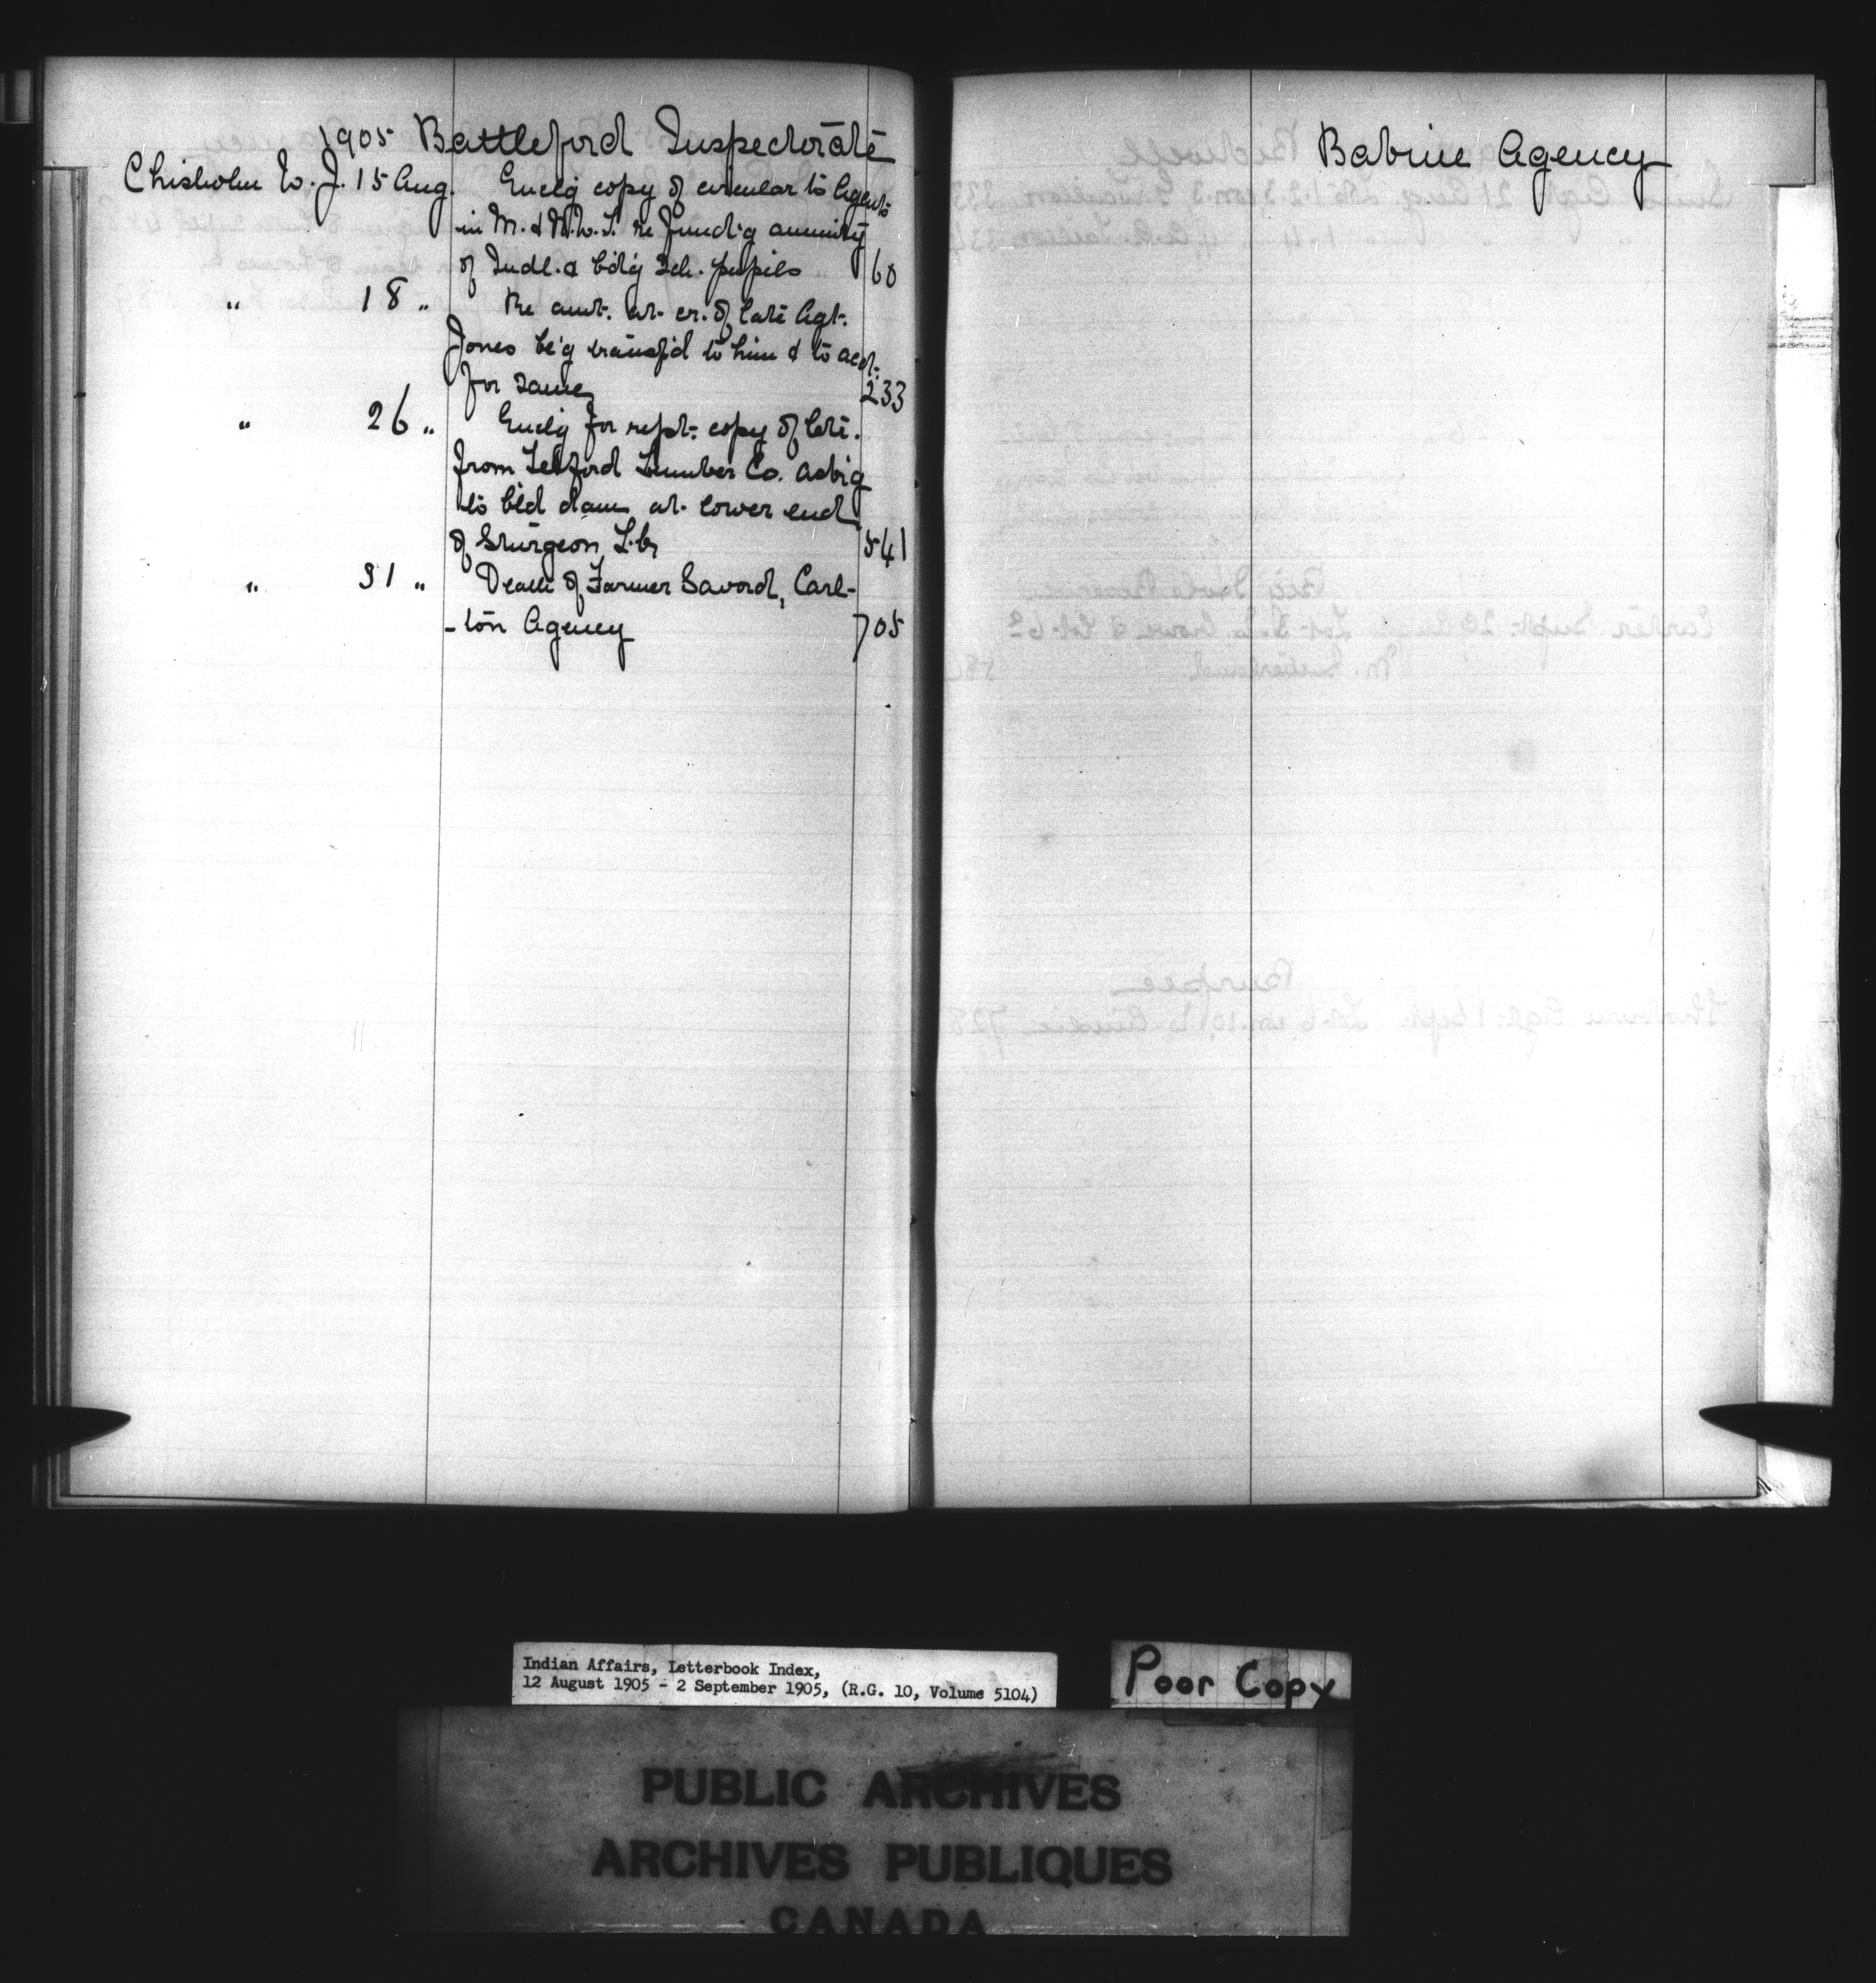 1905 Battleford Inspectorate
Chisholm W. J. 15 Aug. Enclg copy of circular to Agents
in M. & N.W.T. re fund'g annuity
of Indl. & b'd'g Sch. pupils 60
" 18 " Re amt. at cr. of late Agt.
Jones be'g transf'd to him & to acct.
for same 233
" 26 " Enclg for rept. copy of letr.
from Telford Lumber Co. ask'g
to b'ld dam at lower end
of Sturgeon Lk 541
" 31 " Death of Farmer Savord, Carl-
-ton Agency 705
Babine Agency
Indian Affairs, Letterbook Index,
12 August 1905 - 2 September 1905, (R.G. 10, Volume 5104)
Poor Copy
PUBLIC ARCHIVES
ARCHIVES PUBLIQUES
CANADA